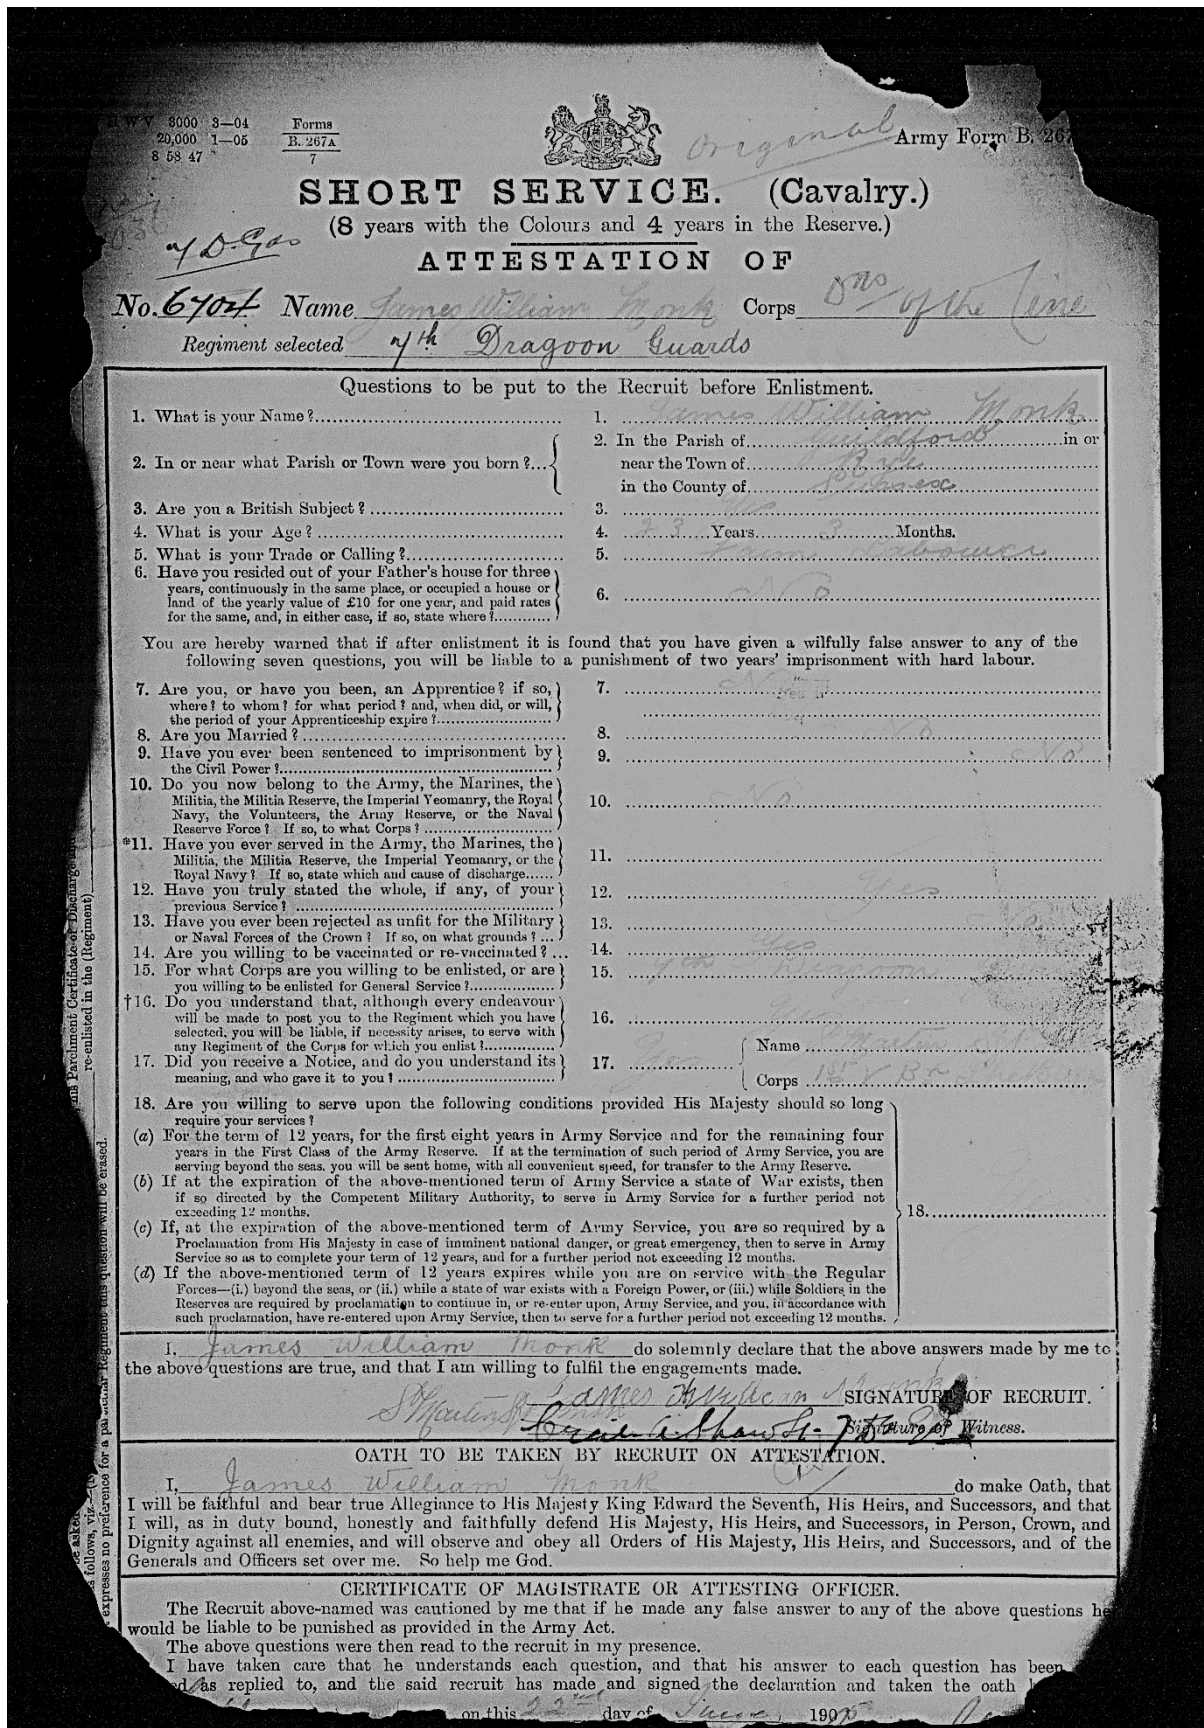 H W V 3000 3—04
20,000 1—05
8 58 47
Forms
B. 267A
7
Original
Army Form B. 267
SHORT SERVICE. (Cavalry.)
(8 years with the Colours and 4 years in the Reserve.)
7 D. Gds
ATTESTATION OF
No. 6704 Name James William Monk Corps Dns of the Line
Regiment selected 7th Dragoon Guards
Questions to be put to the Recruit before Enlistment.
1. What is your Name? 1. James William Monk
2. In or near what Parish or Town were you born? 2. In the Parish of Guildford in or
near the Town of Rye
in the County of Sussex
3. Are you a British Subject? 3. Yes
4. What is your Age? 4. 23 Years 3 Months.
5. What is your Trade or Calling? 5. Farm Labourer
6. Have you resided out of your Father's house for three
years, continuously in the same place, or occupied a house or
land of the yearly value of £10 for one year, and paid rates
for the same, and, in either case, if so, state where? 6. No
You are hereby warned that if after enlistment it is found that you have given a wilfully false answer to any of the
following seven questions, you will be liable to a punishment of two years' imprisonment with hard labour.
7. Are you, or have you been, an Apprentice? if so,
where? to whom? for what period? and, when did, or will,
the period of your Apprenticeship expire? 7. No
8. Are you Married? 8. No
9. Have you ever been sentenced to imprisonment by
the Civil Power? 9. No
10. Do you now belong to the Army, the Marines, the
Militia, the Militia Reserve, the Imperial Yeomanry, the Royal
Navy, the Volunteers, the Army Reserve, or the Naval
Reserve Force? If so, to what Corps? 10. No
*11. Have you ever served in the Army, the Marines, the
Militia, the Militia Reserve, the Imperial Yeomanry, or the
Royal Navy? If so, state which and cause of discharge 11.
12. Have you truly stated the whole, if any, of your
previous Service? 12. Yes
13. Have you ever been rejected as unfit for the Military
or Naval Forces of the Crown? If so, on what grounds? 13. No
14. Are you willing to be vaccinated or re-vaccinated? 14. Yes
15. For what Corps are you willing to be enlisted, or are
you willing to be enlisted for General Service? 15. 7th Dragoon
†16. Do you understand that, although every endeavour
will be made to post you to the Regiment which you have
selected, you will be liable, if necessity arises, to serve with
any Regiment of the Corps for which you enlist? 16. Yes
17. Did you receive a Notice, and do you understand its
meaning, and who gave it to you? 17. Yes Name Martin
Corps 1st V Bn
18. Are you willing to serve upon the following conditions provided His Majesty should so long
require your services?
(a) For the term of 12 years, for the first eight years in Army Service and for the remaining four
years in the First Class of the Army Reserve. If at the termination of such period of Army Service, you are
serving beyond the seas, you will be sent home, with all convenient speed, for transfer to the Army Reserve.
(b) If at the expiration of the above-mentioned term of Army Service a state of War exists, then
if so directed by the Competent Military Authority, to serve in Army Service for a further period not
exceeding 12 months.
18.
(c) If, at the expiration of the above-mentioned term of Army Service, you are so required by a
Proclamation from His Majesty in case of imminent national danger, or great emergency, then to serve in Army
Service so as to complete your term of 12 years, and for a further period not exceeding 12 months.
(d) If the above-mentioned term of 12 years expires while you are on service with the Regular
Forces—(i.) beyond the seas, or (ii.) while a state of war exists with a Foreign Power, or (iii.) while Soldiers in the
Reserves are required by proclamation to continue in, or re-enter upon, Army Service, and you, in accordance with
such proclamation, have re-entered upon Army Service, then to serve for a further period not exceeding 12 months.
I, James William Monk do solemnly declare that the above answers made by me to
the above questions are true, and that I am willing to fulfil the engagements made.
James William Monk SIGNATURE OF RECRUIT.
Signature of Witness.
OATH TO BE TAKEN BY RECRUIT ON ATTESTATION.
I, James William Monk do make Oath, that
I will be faithful and bear true Allegiance to His Majesty King Edward the Seventh, His Heirs, and Successors, and that
I will, as in duty bound, honestly and faithfully defend His Majesty, His Heirs, and Successors, in Person, Crown, and
Dignity against all enemies, and will observe and obey all Orders of His Majesty, His Heirs, and Successors, and of the
Generals and Officers set over me. So help me God.
CERTIFICATE OF MAGISTRATE OR ATTESTING OFFICER.
The Recruit above-named was cautioned by me that if he made any false answer to any of the above questions he
would be liable to be punished as provided in the Army Act.
The above questions were then read to the recruit in my presence.
I have taken care that he understands each question, and that his answer to each question has been
as replied to, and the said recruit has made and signed the declaration and taken the oath
on this 22nd day of June 1905
Parchment Certificate of Discharge
re-enlisted in the (Regiment)
particular Regiment this question will be erased.
follows, viz.—
expresses no preference for a